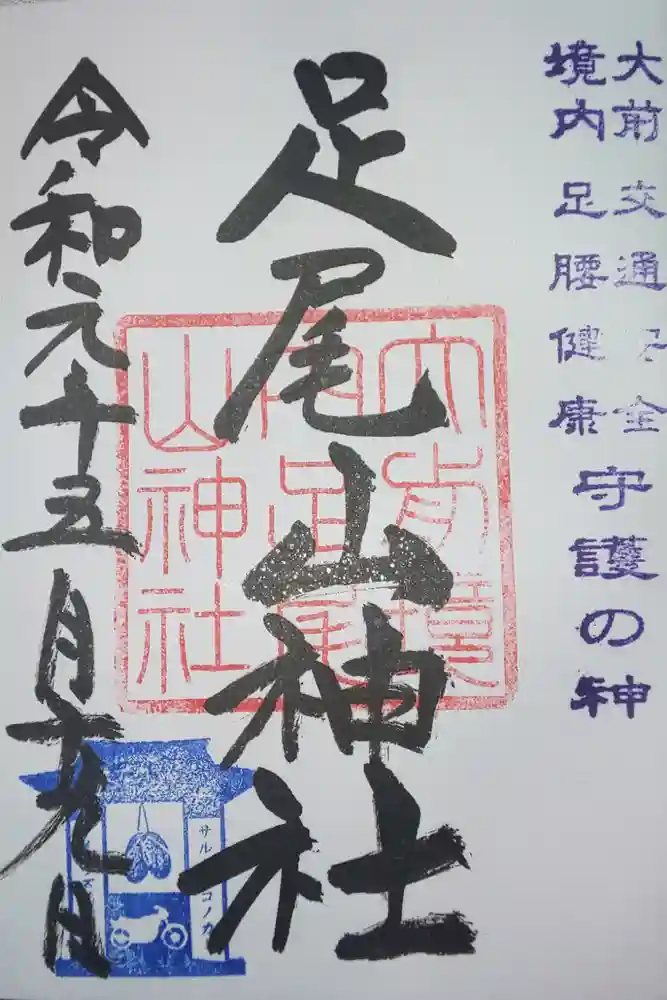 大前交通安全
境内足腰健康
守護の神
足尾山神社
大前境
内足尾
山神社
令和元年五月十九日
サル
コノカ